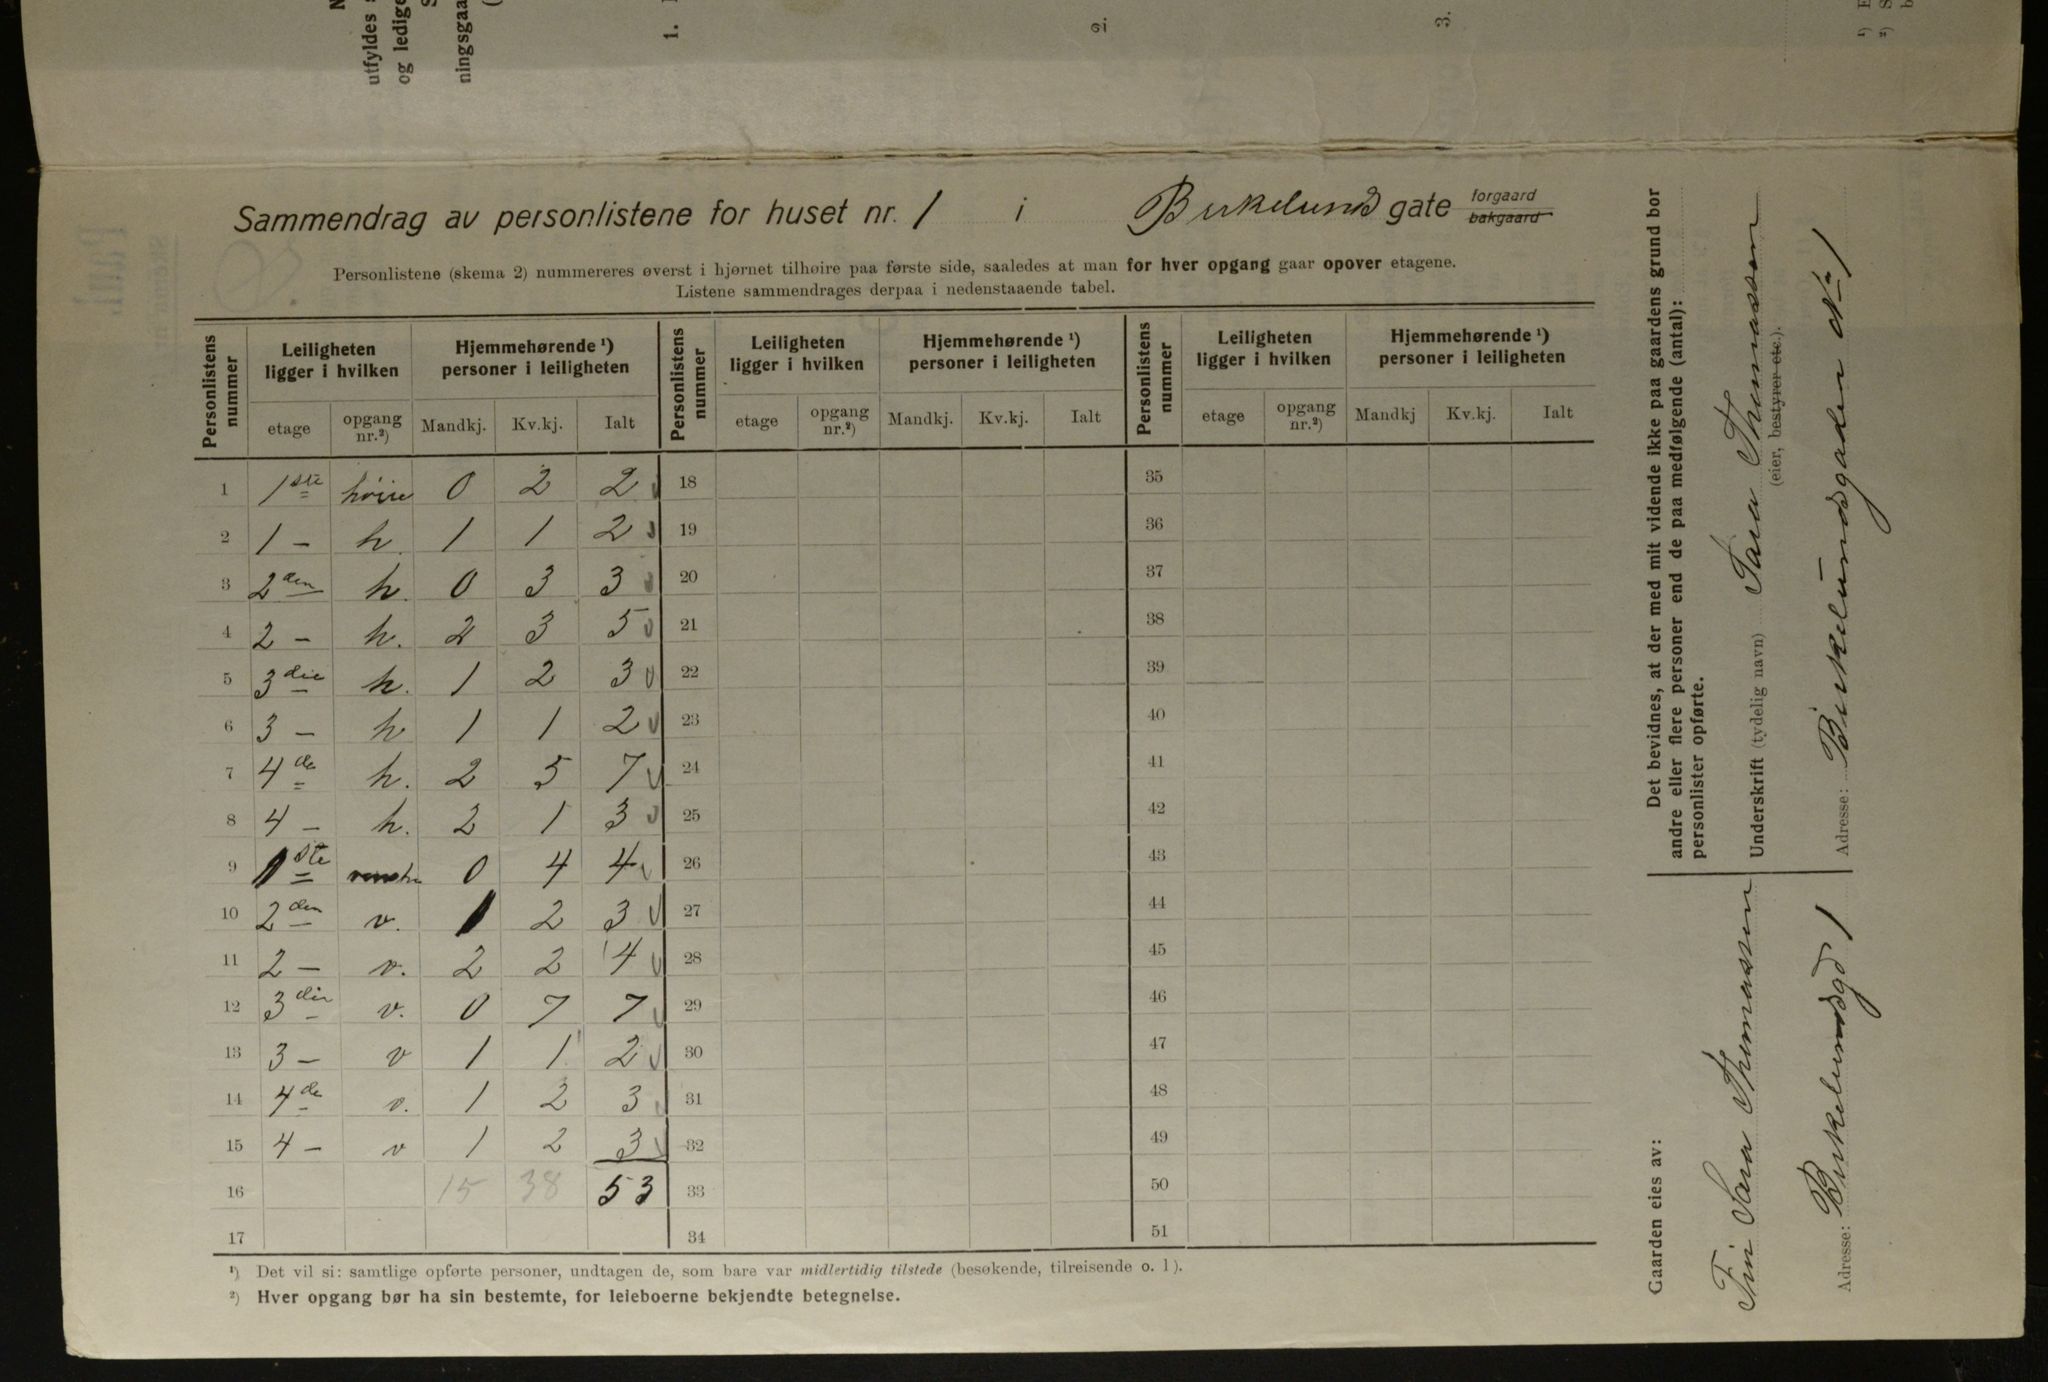 utfyldes
og ledige
ningsgaa
1.
2.
3.
Sammendrag av personlistene for huset nr. 1 i Birkelunds gate forgaard
bakgaard
Personlistene (skema 2) nummereres øverst i hjørnet tilhøire paa første side, saaledes at man for hver opgang gaar opover etagene.
Listene sammendrages derpaa i nedenstaaende tabel.
Personlistens nummer | Leiligheten ligger i hvilken | Hjemmehørende ¹) personer i leiligheten | Personlistens nummer | Leiligheten ligger i hvilken | Hjemmehørende ¹) personer i leiligheten | Personlistens nummer | Leiligheten ligger i hvilken | Hjemmehørende ¹) personer i leiligheten
etage | opgang nr.²) | Mandkj. | Kv.kj. | Ialt | etage | opgang nr.²) | Mandkj. | Kv.kj. | Ialt | etage | opgang nr.²) | Mandkj | Kv.kj. | Ialt
1 1ste høire 0 2 2 18 35
2 1 – h. 1 1 2 19 36
3 2den h. 0 3 3 20 37
4 2 – h. 2 3 5 21 38
5 3die h. 1 2 3 22 39
6 3 – h 1 1 2 23 40
7 4de h. 2 5 7 24 41
8 4 – h. 2 1 3 25 42
9 1ste venstre 0 4 4 26 43
10 2den v. 1 2 3 27 44
11 2 – v. 2 2 4 28 45
12 3die v. 0 7 7 29 46
13 3 – v 1 1 2 30 47
14 4de v. 1 2 3 31 48
15 4 – v 1 2 3 32 49
16 15 38 53 33 50
17 34 51
¹) Det vil si: samtlige opførte personer, undtagen de, som bare var midlertidig tilstede (besøkende, tilreisende o. l).
²) Hver opgang bør ha sin bestemte, for leieboerne bekjendte betegnelse.
Det bevidnes, at der med mit vidende ikke paa gaardens grund bor
andre eller flere personer end de paa medfølgende (antal):
personlister opførte.
Underskrift (tydelig navn) Sara Thomassen
(eier, bestyrer etc.).
Adresse: Birkelundsgaden Nr 1
Gaarden eies av:
Frk Sara Thomassen
Adresse: Birkelundsgd 1